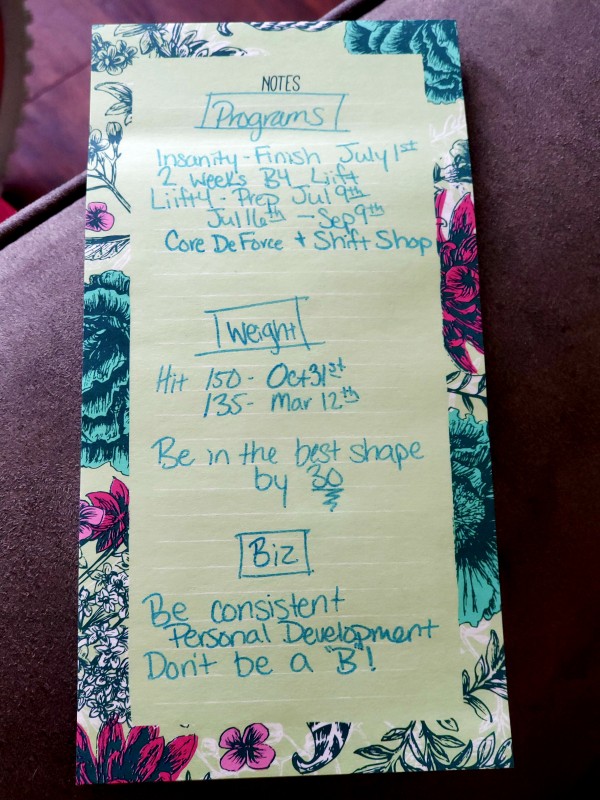 NOTES
Programs
Insanity - Finish July 1st
2 Week's B4 Liift
Liift4 - Prep Jul 9th
Jul 16th - Sep 9th
Core De Force + Shift Shop
Weight
Hit 150 - Oct 31st
135 - Mar 12th
Be in the best shape
by 30
Biz
Be consistent
Personal Development
Don't be a "B"!